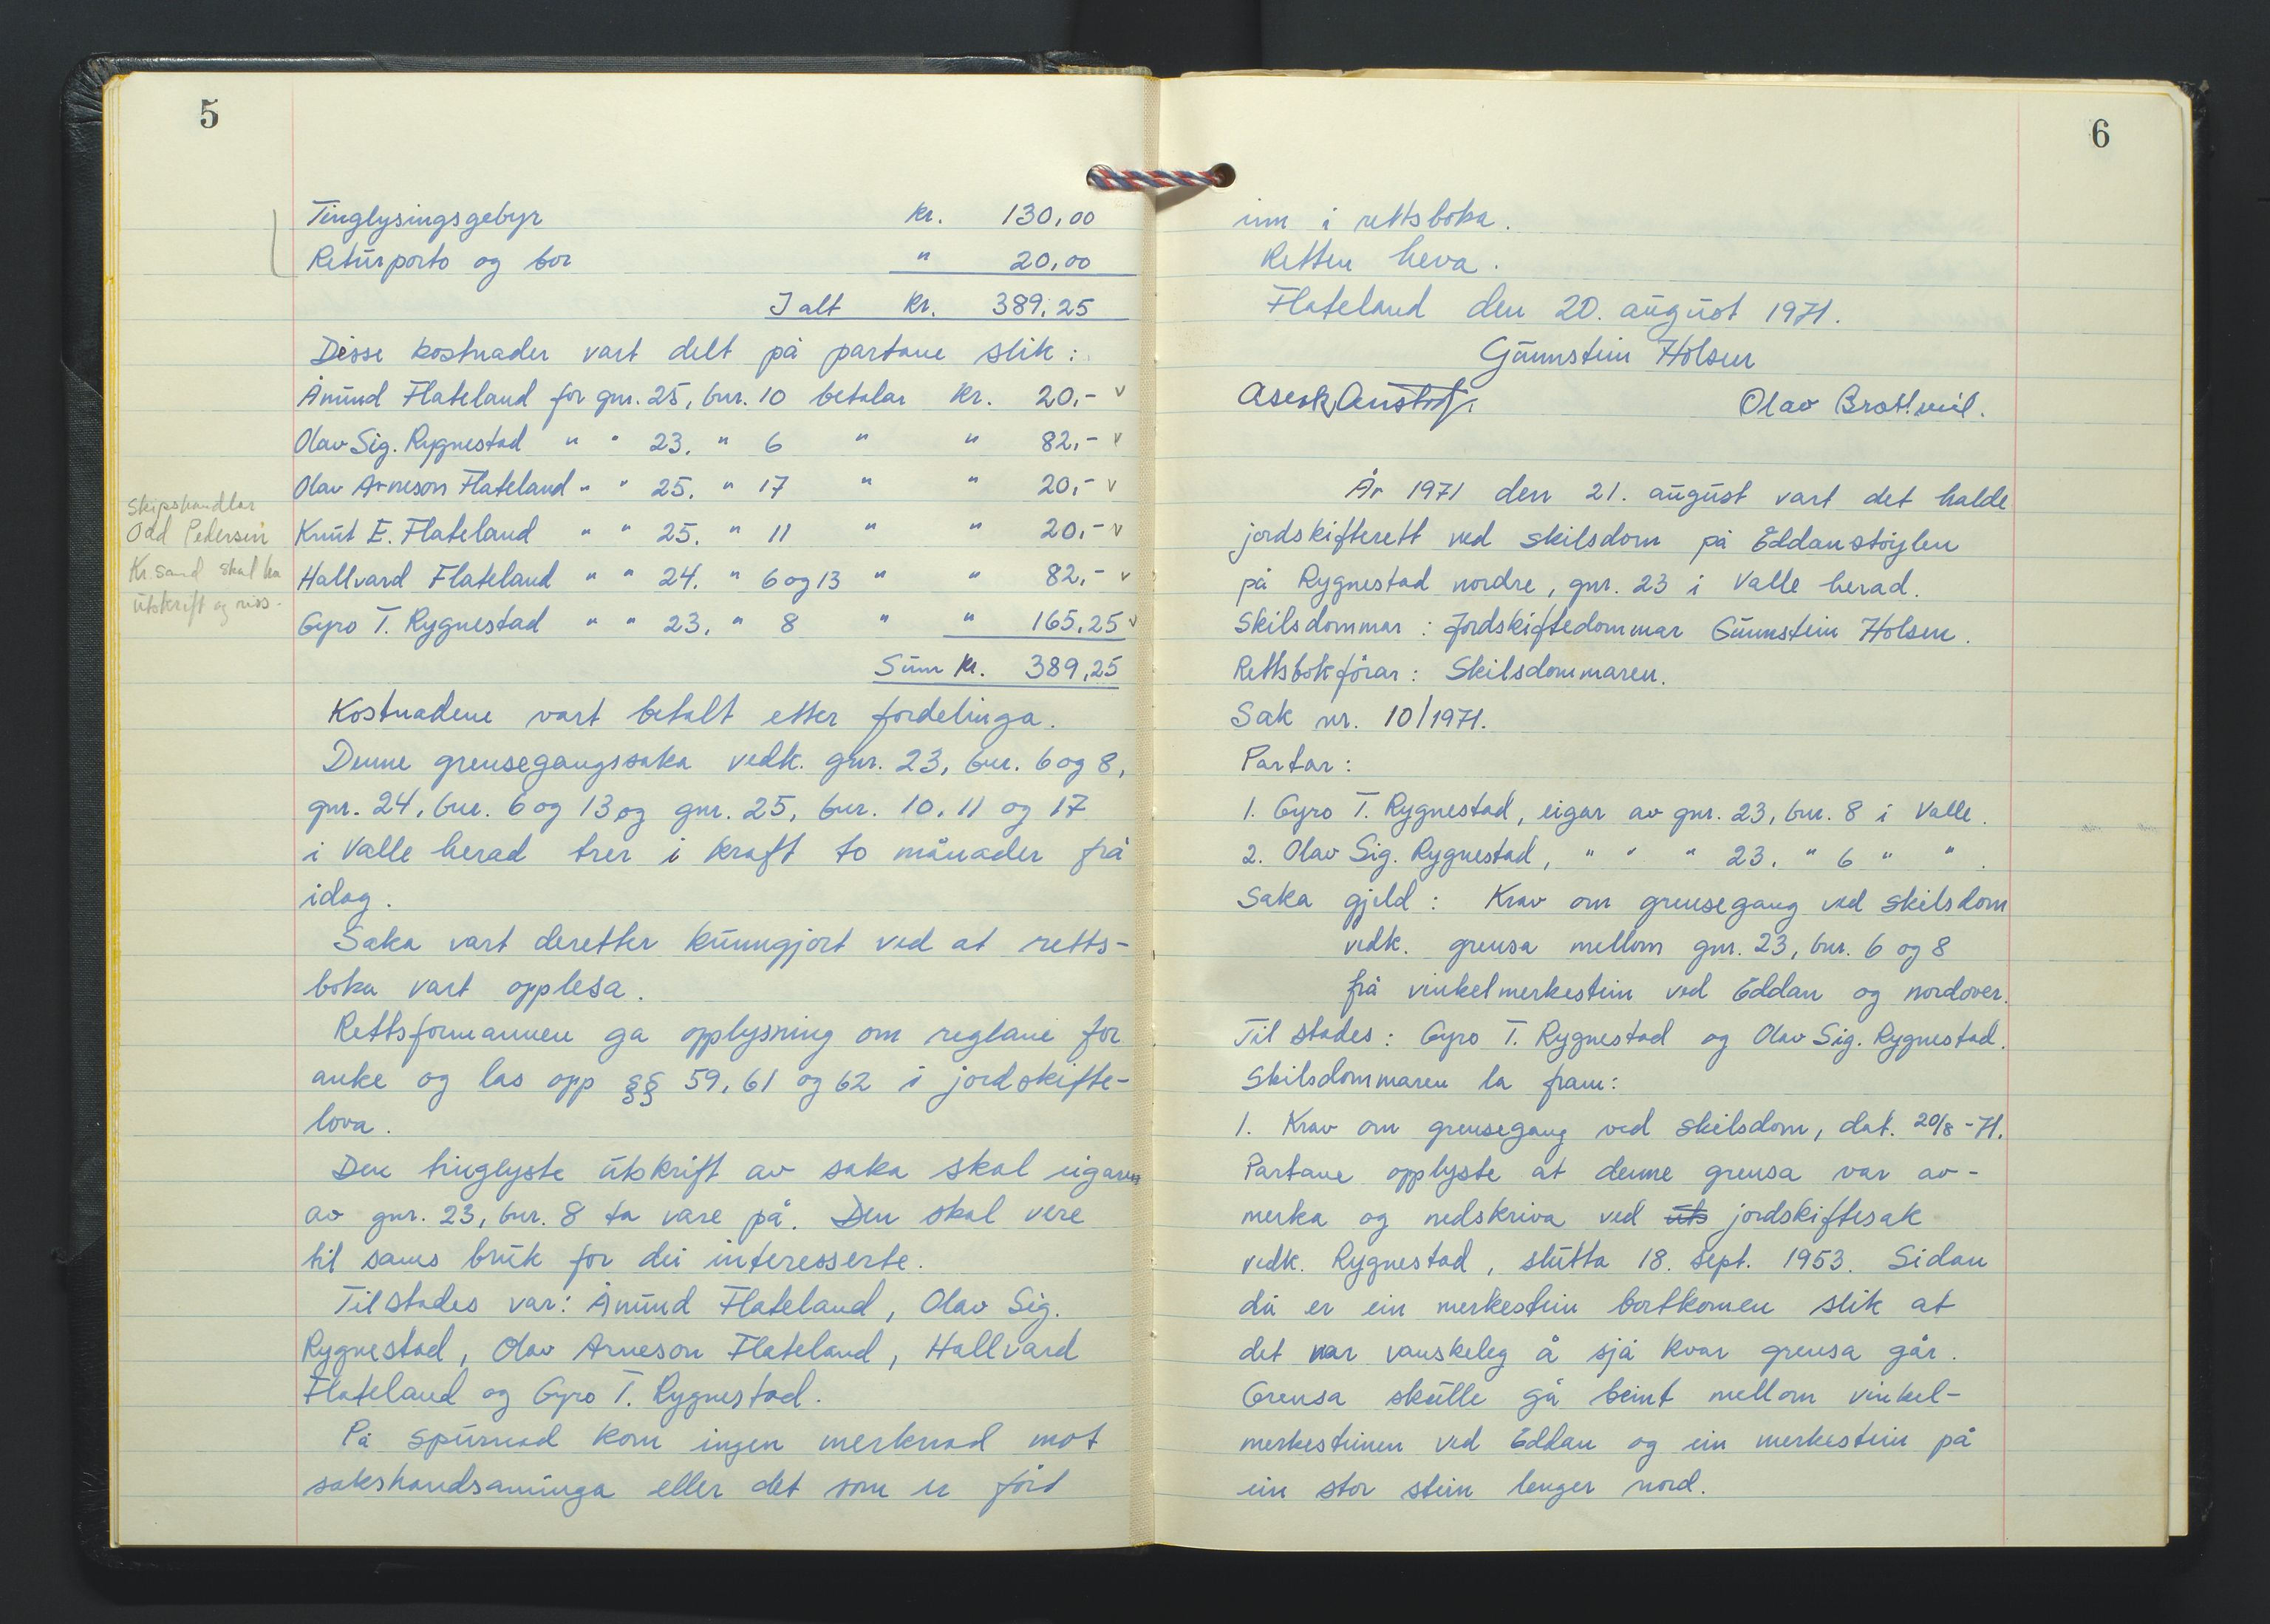 5
Tinglysingsgebyr kr. 130,00
Returporto og bor " 20,00
I alt kr. 389,25
Disse kostnader vart delt på partane slik:
Åmund Flateland for gnr. 25, bnr. 10 betalar kr. 20,- v
Olav Sig. Rygnestad " " 23, " 6 " " 82,- v
Olav Arneson Flateland " " 25, " 17 " " 20,- v
Knut E. Flateland " " 25, " 11 " " 20,- v
Hallvard Flateland " " 24, " 6 og 13 " " 82,- v
Gyro T. Rygnestad " " 23, " 8 " " 165,25 v
Sum kr. 389,25
Skipshandlar
Odd Pedersen
Kr.sand skal ha
utskrift og riss.
Kostnadene vart betalt etter fordelinga.
Denne grensegangssaka vedk. gnr. 23, bnr. 6 og 8,
gnr. 24, bnr. 6 og 13 og gnr. 25, bnr. 10, 11 og 17
i Valle herad trer i kraft to månader frå
idag.
Saka vart deretter kunngjort ved at retts-
boka vart opplesa.
Rettsformannen ga opplysning om reglane for
anke og las opp §§ 59, 61 og 62 i jordskifte-
lova.
Den tinglyste utskrift av saka skal eigaren
av gnr. 23, bnr. 8 ta vare på. Den skal vere
til sams bruk for dei interesserte.
Tilstades var: Åmund Flateland, Olav Sig.
Rygnestad, Olav Arneson Flateland, Hallvard
Flateland og Gyro T. Rygnestad.
På spurnad kom ingen merknad mot
sakshandsaminga eller det som er ført
6
inn i rettsboka.
Retten heva.
Flateland den 20. august 1971.
Gunnstein Holsen
Olav Brottveit.
År 1971 den 21. august vart det halde
jordskifterett ved skilsdom på Eddanstøylen
på Rygnestad nordre, gnr. 23 i Valle herad.
Skilsdommar: Jordskiftedommar Gunnstein Holsen.
Rettsbokførar: Skilsdommaren.
Sak nr. 10/1971.
Partar:
1. Gyro T. Rygnestad, eigar av gnr. 23, bnr. 8 i Valle.
2. Olav Sig. Rygnestad, " " " 23, " 6 " ".
Saka gjeld: Krav om grensegang ved skilsdom
vedk. grensa mellom gnr. 23, bnr. 6 og 8
frå vinkelmerkestein ved Eddan og nordover.
Til stades: Gyro T. Rygnestad og Olav Sig. Rygnestad.
Skilsdommaren la fram:
1. Krav om grensegang ved skilsdom, dat. 20/8 - 71.
Partane opplyste at denne grensa var av-
merka og nedskriva ved uts jordskiftesak
vedk. Rygnestad, slutta 18. sept. 1953. Sidan
då er ein merkestein bortkomen slik at
det var vanskeleg å sjå kvar grensa går.
Grensa skulle gå beint mellom vinkel-
merkesteinen ved Eddan og ein merkestein på
ein stor stein lenger nord.